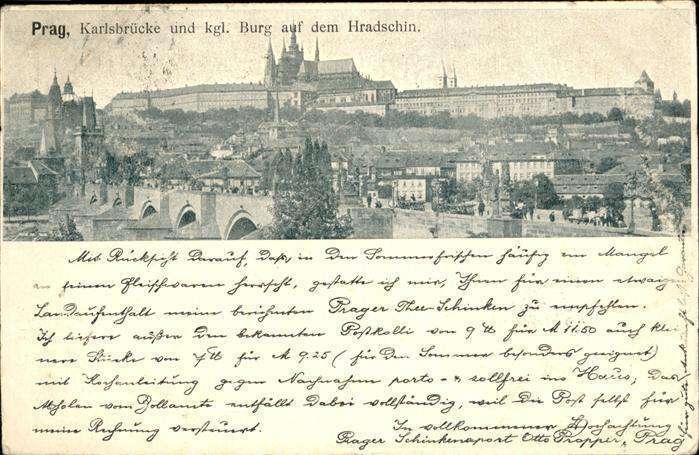 Prag, Karlsbrücke und kgl. Burg auf dem Hradschin.
Mit Rücksicht darauf, dass in den Sommerfrischen häufig ein Mangel
an feinen Fleischwaren herrscht, gestatte ich mir, Ihnen für Ihren etwaigen
Landaufenthalt meine berühmten Prager Thee-Schinken zu empfehlen.
Ich liefere außer den bekannten Postkolli von 9 ℔ für M 11.50 auch klei-
nere Stücke von 7 ℔ für M 9.25 (für den Sommer besonders geeignet)
mit Kochanleitung gegen Nachnahm porto- & zollfrei ins Haus; das
Abholen vom Zollamte entfällt dabei vollständig, weil die Post selbst für
meine Rechnung versteuert.
In vollkommener Hochachtung
Prager Schinkenexport Otto Propper, Prag